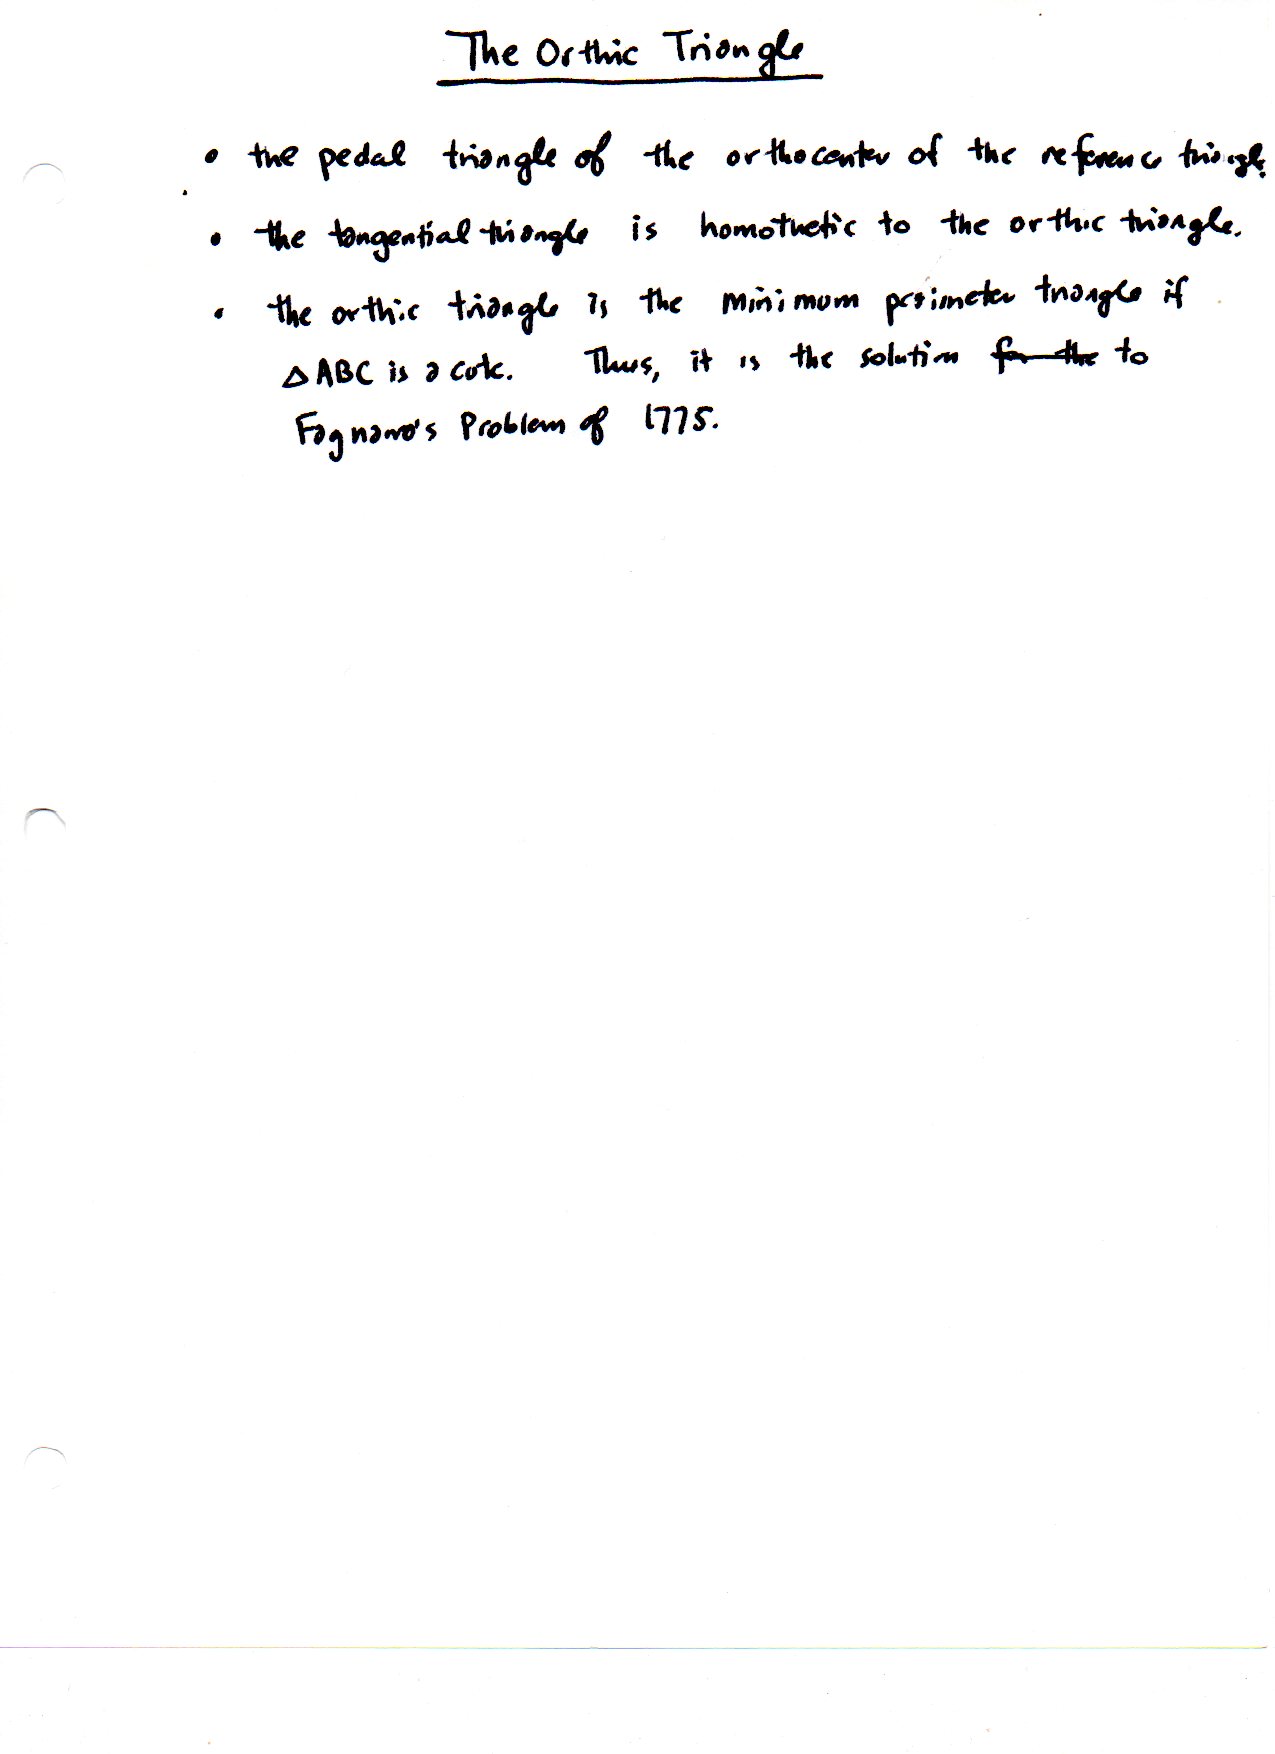 The Orthic Triangle
• the pedal triangle of the orthocenter of the reference triangle.
• the tangential triangle is homothetic to the orthic triangle.
• the orthic triangle is the minimum perimeter triangle if
△ABC is acute. Thus, it is the solution for the to
Fagnano's Problem of 1775.